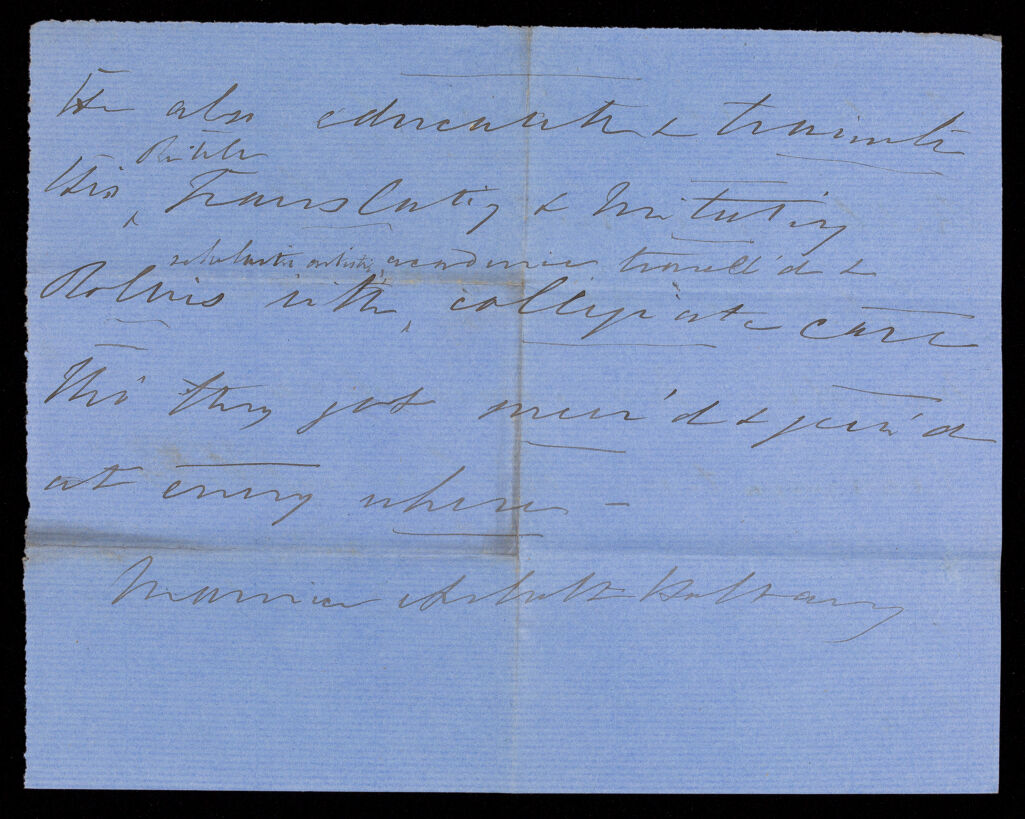 He also educateth & traineth
His Translating & Imitating
scholastic artistic academic travell'd &
Robins with collegiate care
Tho' they get sneer'd & jeer'd
at every where –